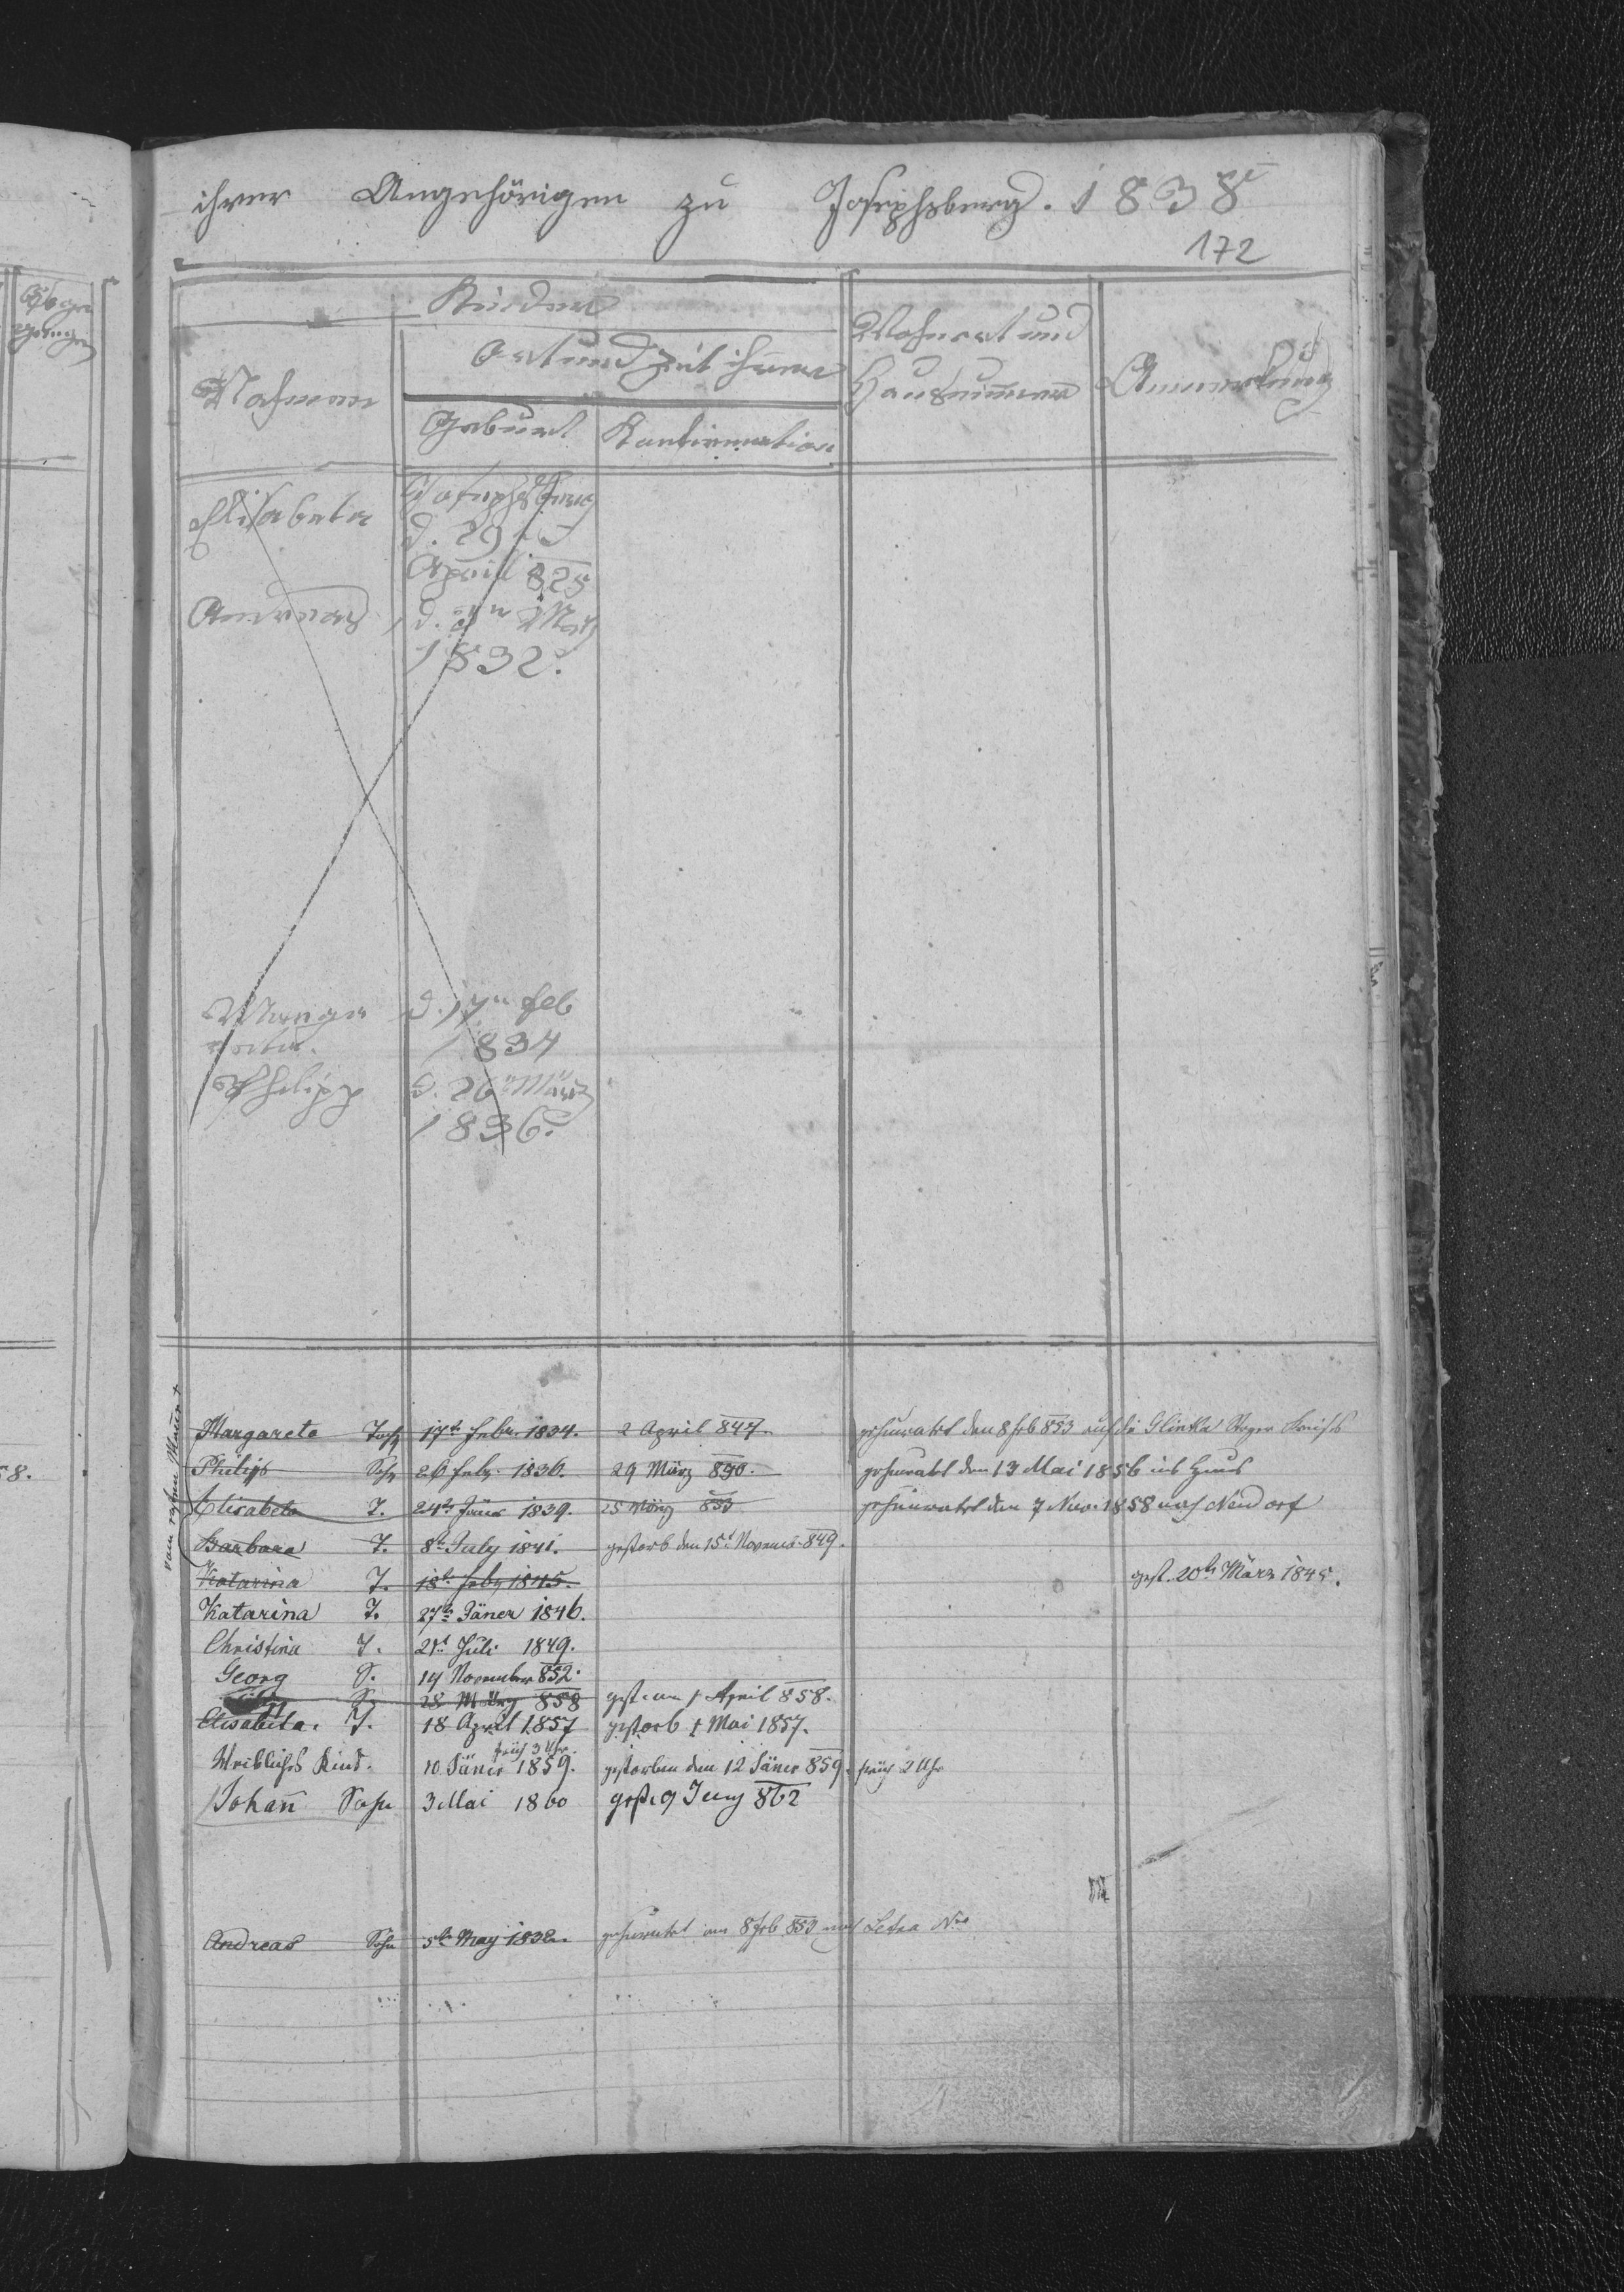 ihrer Angehörigen zu Josephsberg. 1838
172
Kinder
Nahmen
Ort und Zeit ihrer
Geburt
Konfirmation
Wohnort und
Hausnummer
Anmerkung
Elisabeta
Josephsberg
d. 29
April 825
Andreas d. May
1832.
Marga d. 17n Feb
reta. 1834
Philipp d. 26n März
1836.
vom ersten Mann
Margareta Toch 17t Febr. 1834. 2 April 847. geheuratet den 8 Feb 853 auf die
Philip Sohn 26 Feby 1836. 29 März 850. geheuratet den 13 Mai 1856 ins Haus
Elisabeta T. 24t Jäner 1839. 25 März 853 geheuratet den 7 Nov. 1858 nach Neudorf
Barbara T. 8t July 1841. gestorb den 15t November 849.
Katarina T. 18t Feby 1845. gest. 20t März 1845.
Katarina T. 27t Jäner 1846.
Christina T. 21t Juli 1849.
Georg S. 14 November 852.
S. 28 März 858 gest. am 1 April 858.
Elisabeta. T. 18 April 1857 gestorb 1 Mai 1857.
Weibliches Kind. 10 Jäner früh 3 Uhr 1859. gestorben den 12 Jäner 859. früh 2 Uhr
Johañ Sohn 3 Mai 1860 gest. 9 Juny 862
Andreas Sohn 5t May 1832. geheuratet am 8 Feb 853 nach
58.